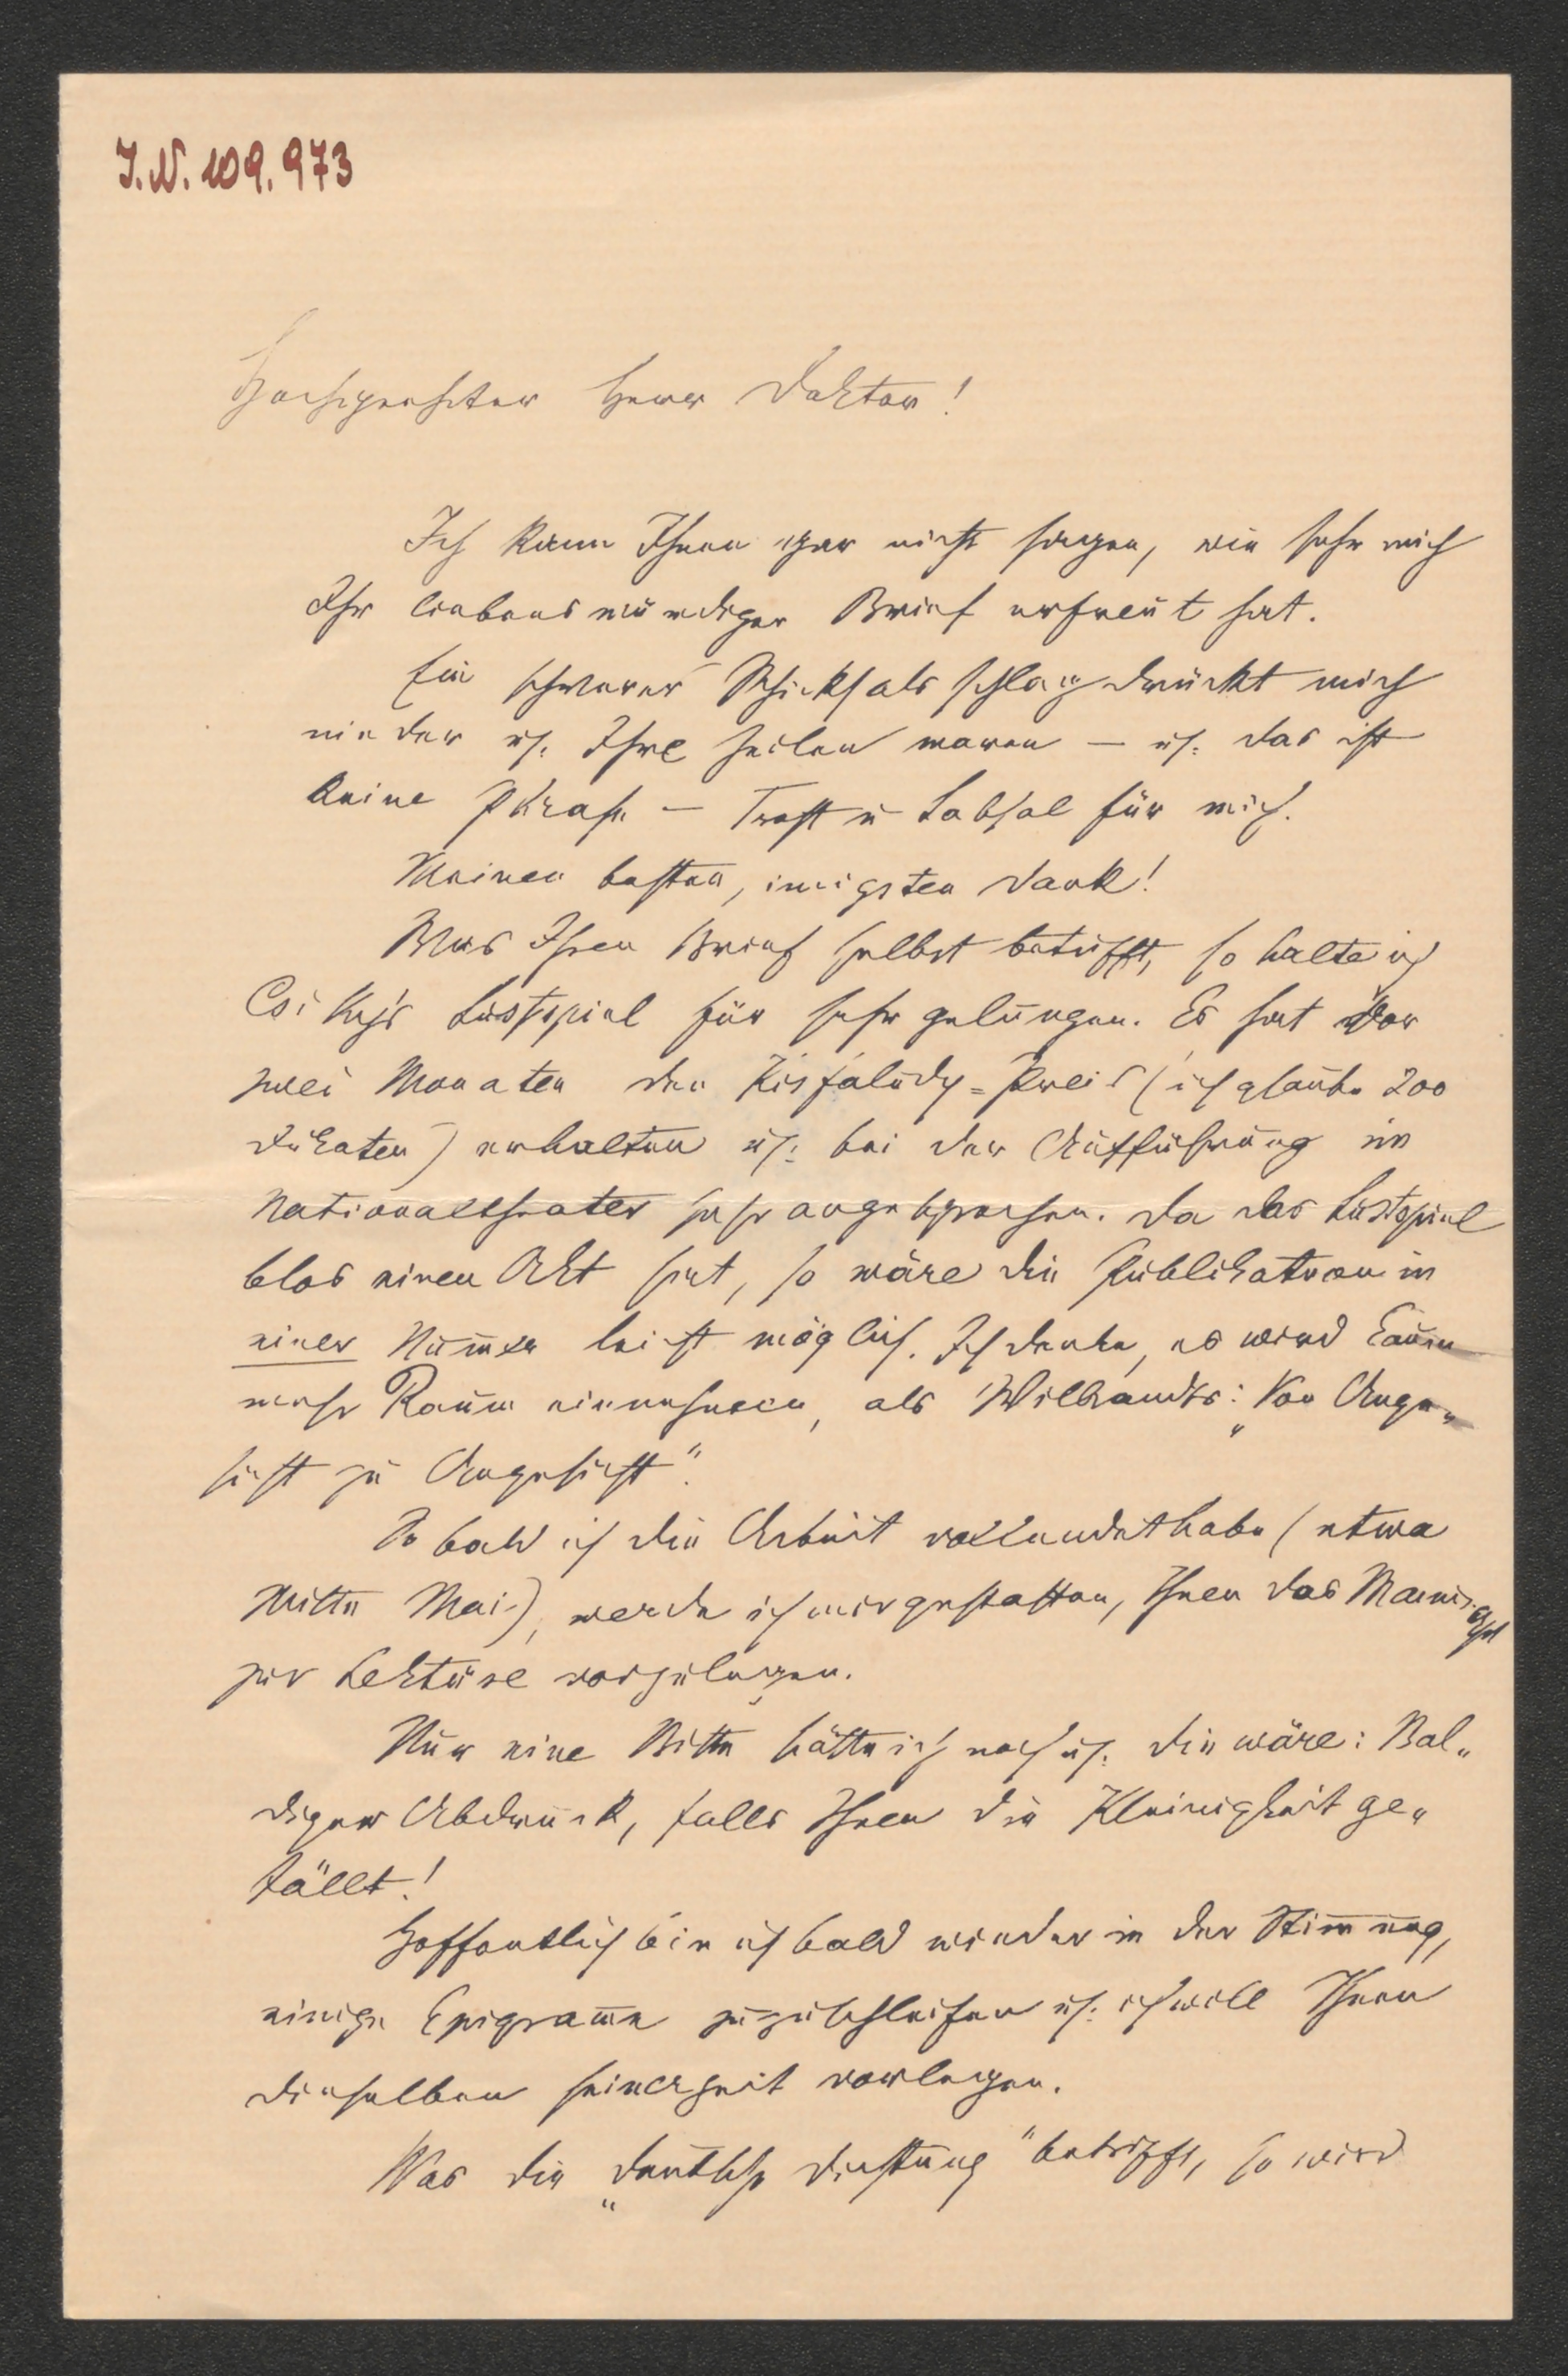 J.N. 109.973
Hochgeehrter Herr Doktor!
Ich kann Ihnen gar nicht sagen, wie sehr mich
Ihr liebenswürdiger Brief erfreut hat.
Ein schwerer Schicksalsschlag drückt mich
nieder u. Ihre Zeilen waren — u. das ist
keine Phrase — Trost u Labsal für mich.
Meinen besten, innigsten Dank!
Was Ihren Brief selbst betrifft, so halte ich
Csiky's Lustspiel für sehr gelungen. Es hat vor
zwei Monaten den Kisfaludy-Preis (ich glaube 200
Dukaten) erhalten u. bei der Aufführung im
Nationaltheater sehr angesprochen. Da das Lustspiel
blos einen Akt hat, so wäre die Publikation in
einer Num̅er leicht möglich. Ich denke, es wird kaum
mehr Raum einnehmen, als Wilbrandts: „Von Ange„
sicht zu Angesicht“.
Sobald ich die Arbeit vollendet habe (etwa
Mitte Mai), werde ich mir gestatten, Ihnen das Manuscript
zur Lektüre vorzulegen.
Nur eine Bitte hätte ich noch u. die wäre: Bal„
diger Abdruck, falls Ihnen die Kleinigkeit ge„
fällt!
Hoffentlich bin ich bald wieder in der Stim̅ung,
einige Epigram̅e zuzuschleifen u. ich will Ihnen
dieselben seinerzeit vorlegen.
Was die „Deutsche Dichtung“ betrifft, so wird